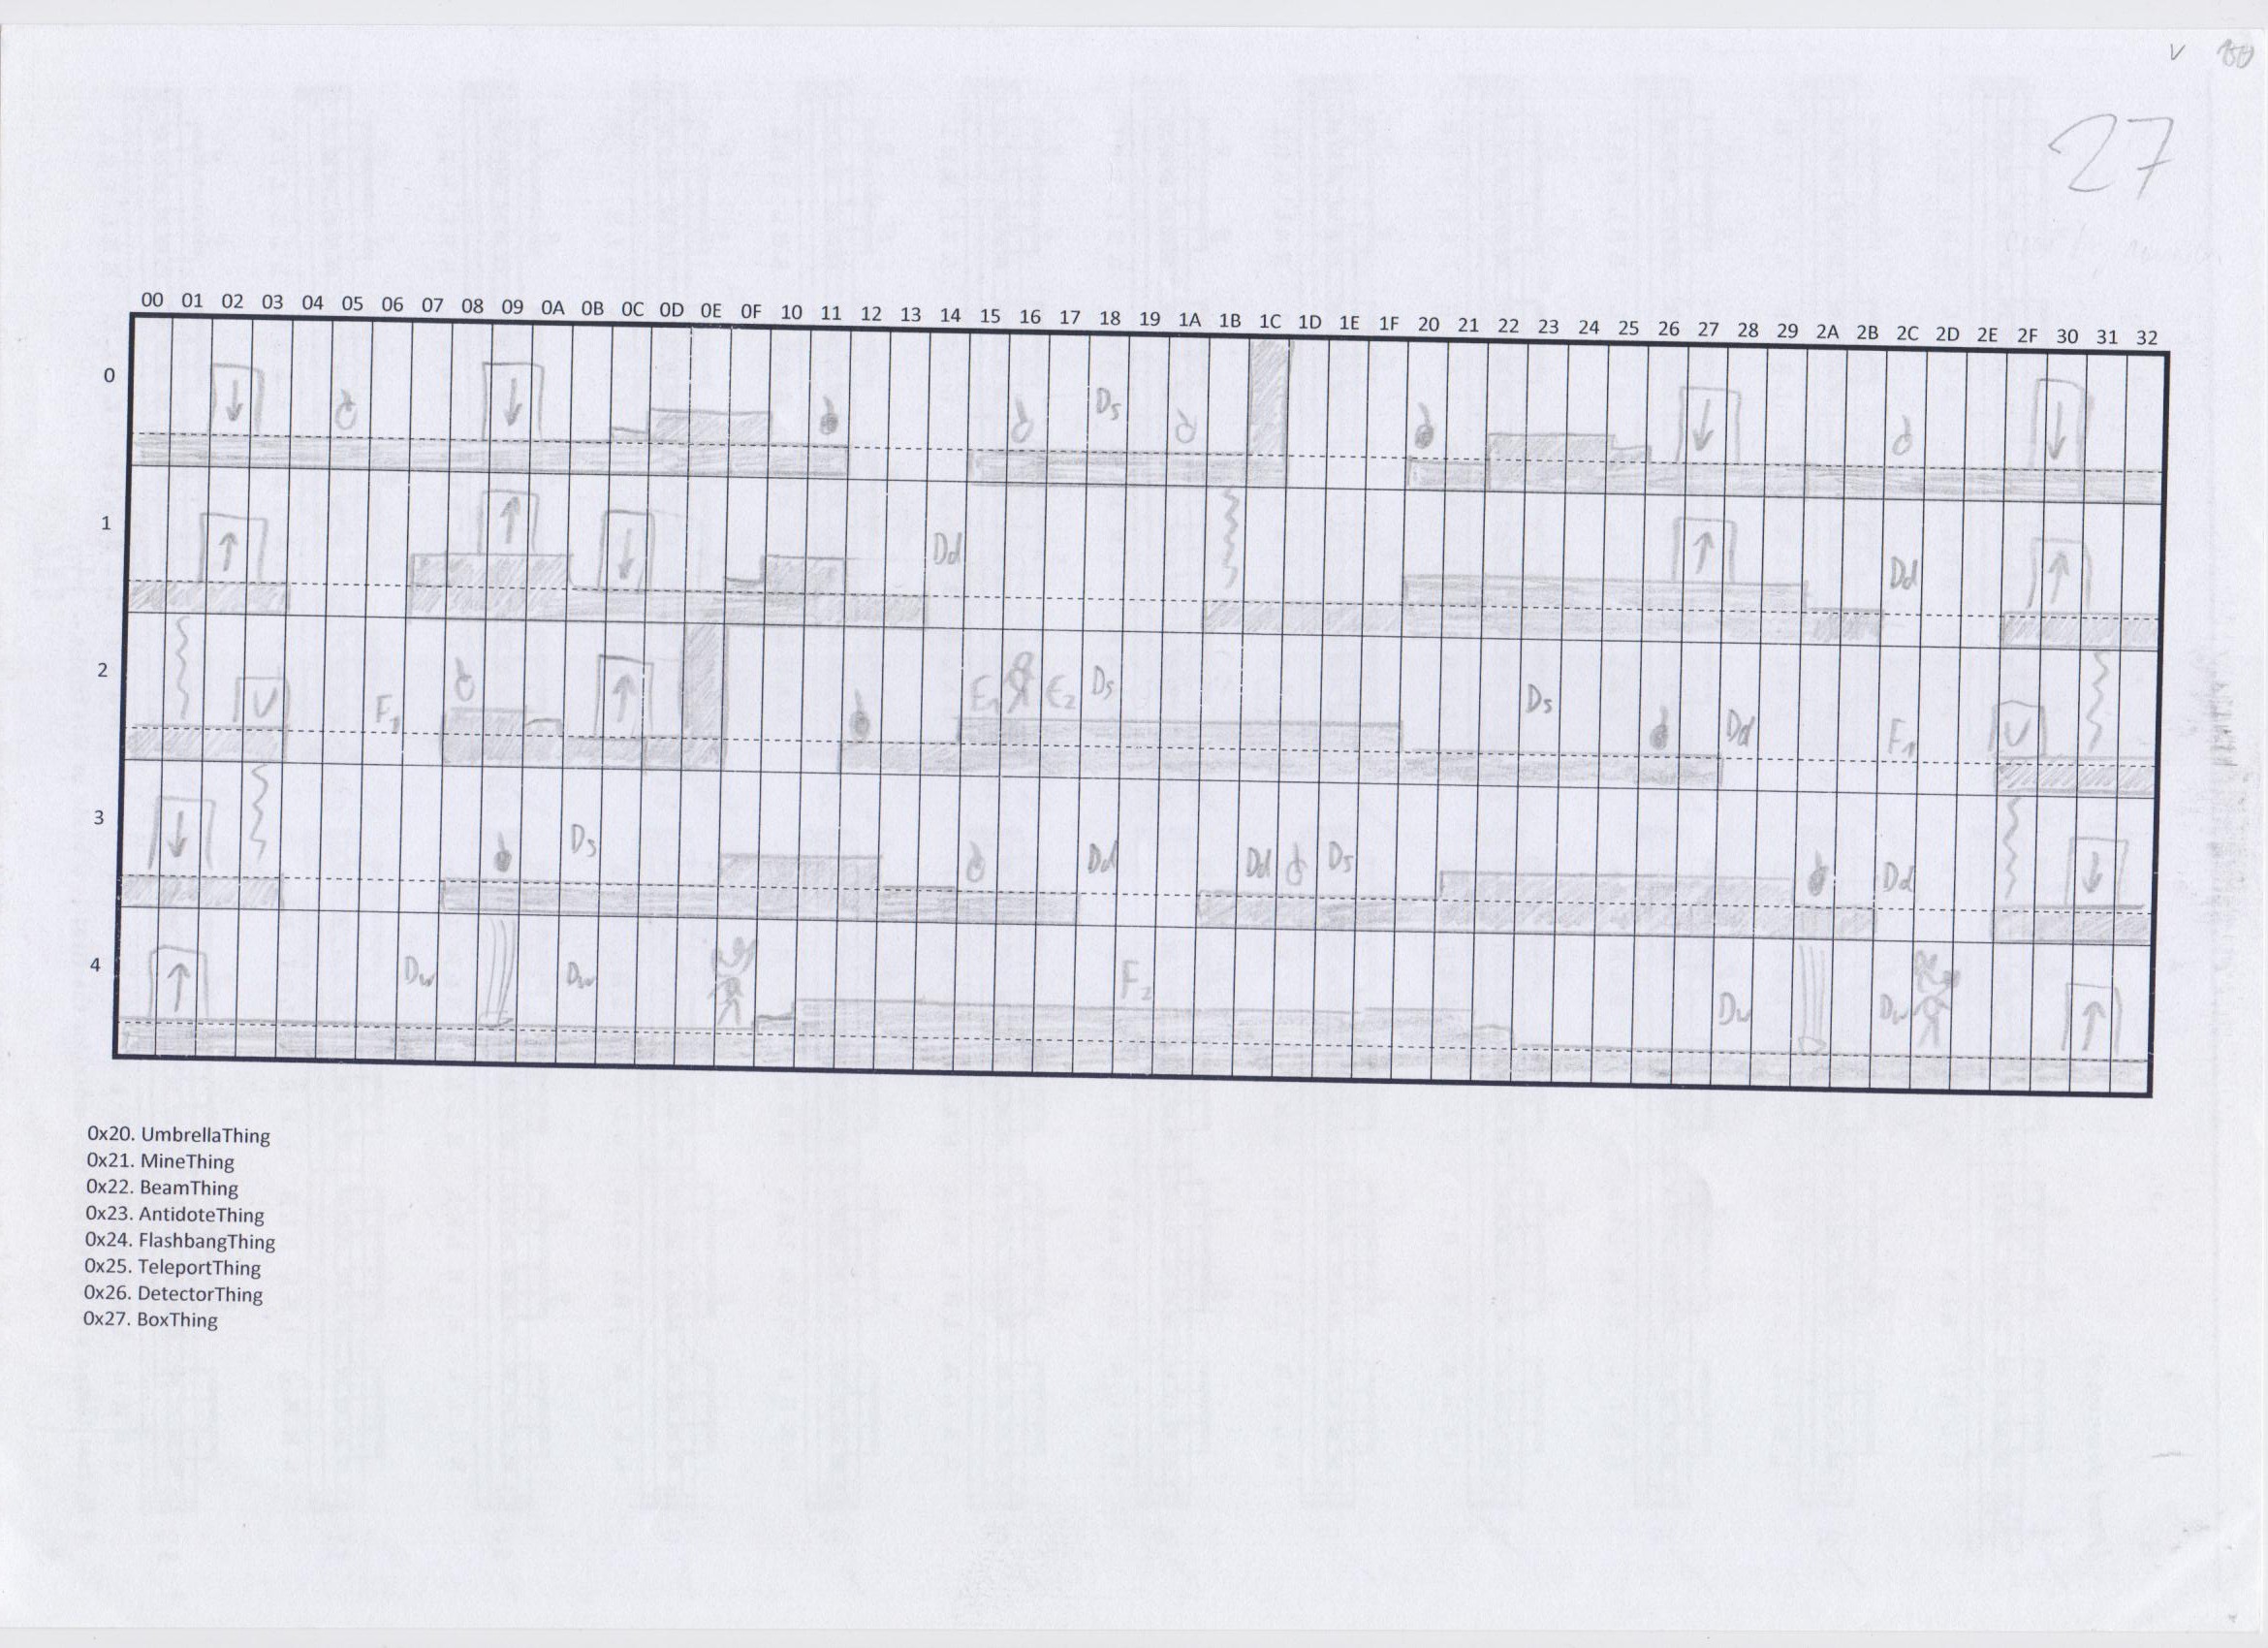 V
27
00 01 02 03 04 05 06 07 08 09 0A 0B 0C 0D 0E 0F 10 11 12 13 14 15 16 17 18 19 1A 1B 1C 1D 1E 1F 20 21 22 23 24 25 26 27 28 29 2A 2B 2C 2D 2E 2F 30 31 32
0 Ds
1 Dd Dd
2 F1 E1 E2 Ds Ds Dd F1
3 Ds Dd Dd Ds Dd
4 Dw Dw F2 Dw Dw
0x20. UmbrellaThing
0x21. MineThing
0x22. BeamThing
0x23. AntidoteThing
0x24. FlashbangThing
0x25. TeleportThing
0x26. DetectorThing
0x27. BoxThing